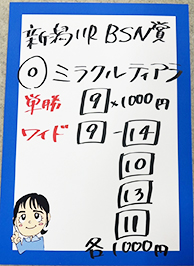 新潟11R BSN賞
◎ ミラクルティアラ
単勝 9 ×1000円
ワイド 9 - 14
10
13
11
各1000円